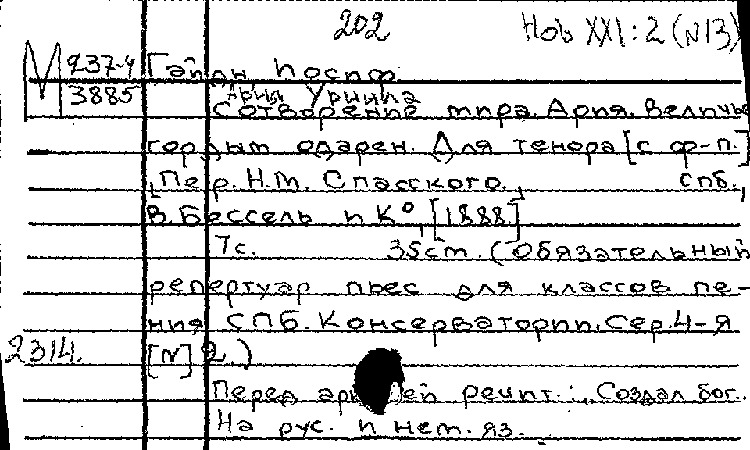 202 Нов XXI:2 (N13)
М 937-4 Гайдн Йосиф
3885 Ария Уриила
Сотворение мира. Ария. Величье
гордым одарен. Для тенора [с ф-п.]
Пер. Н.М. Спасского. СПб.,
В. Бессель и К°, [1888]
7с. 35см. (Обязательный
репертуар пьес для классов пе-
ния СПБ. Консерватории. Сер. 4-я
2314. [N] 2.)
Перед речит.: „Создал бог.
На рус. и нем. яз.